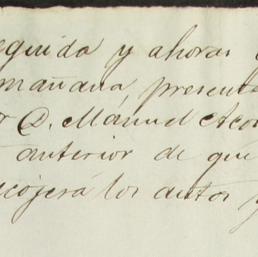 eguida y ahoras
mañana, present
D. Manuel Aco
anterior de que
cojerá los autos y